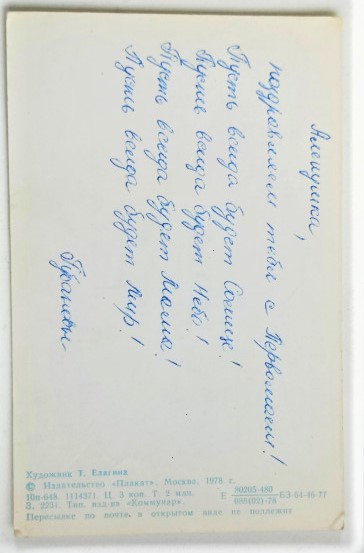 Алешулька,
поздравляем тебя с Первомаем!
Пусть всегда будет Солнце!
Пусть всегда будет Небо!
Пусть всегда будет Мама!
Пусть всегда будет Мир!
Художник Т. Елагина
© Издательство «Плакат», Москва, 1978 г.
Ип-648. 1114371. Ц. 3 коп. Т. 2 млн.
З. 2231. Тип. изд-ва «Коммунар».
Е 80205-480 БЗ-54-46-77
086(02)-78
Пересылке по почте в открытом виде не подлежит